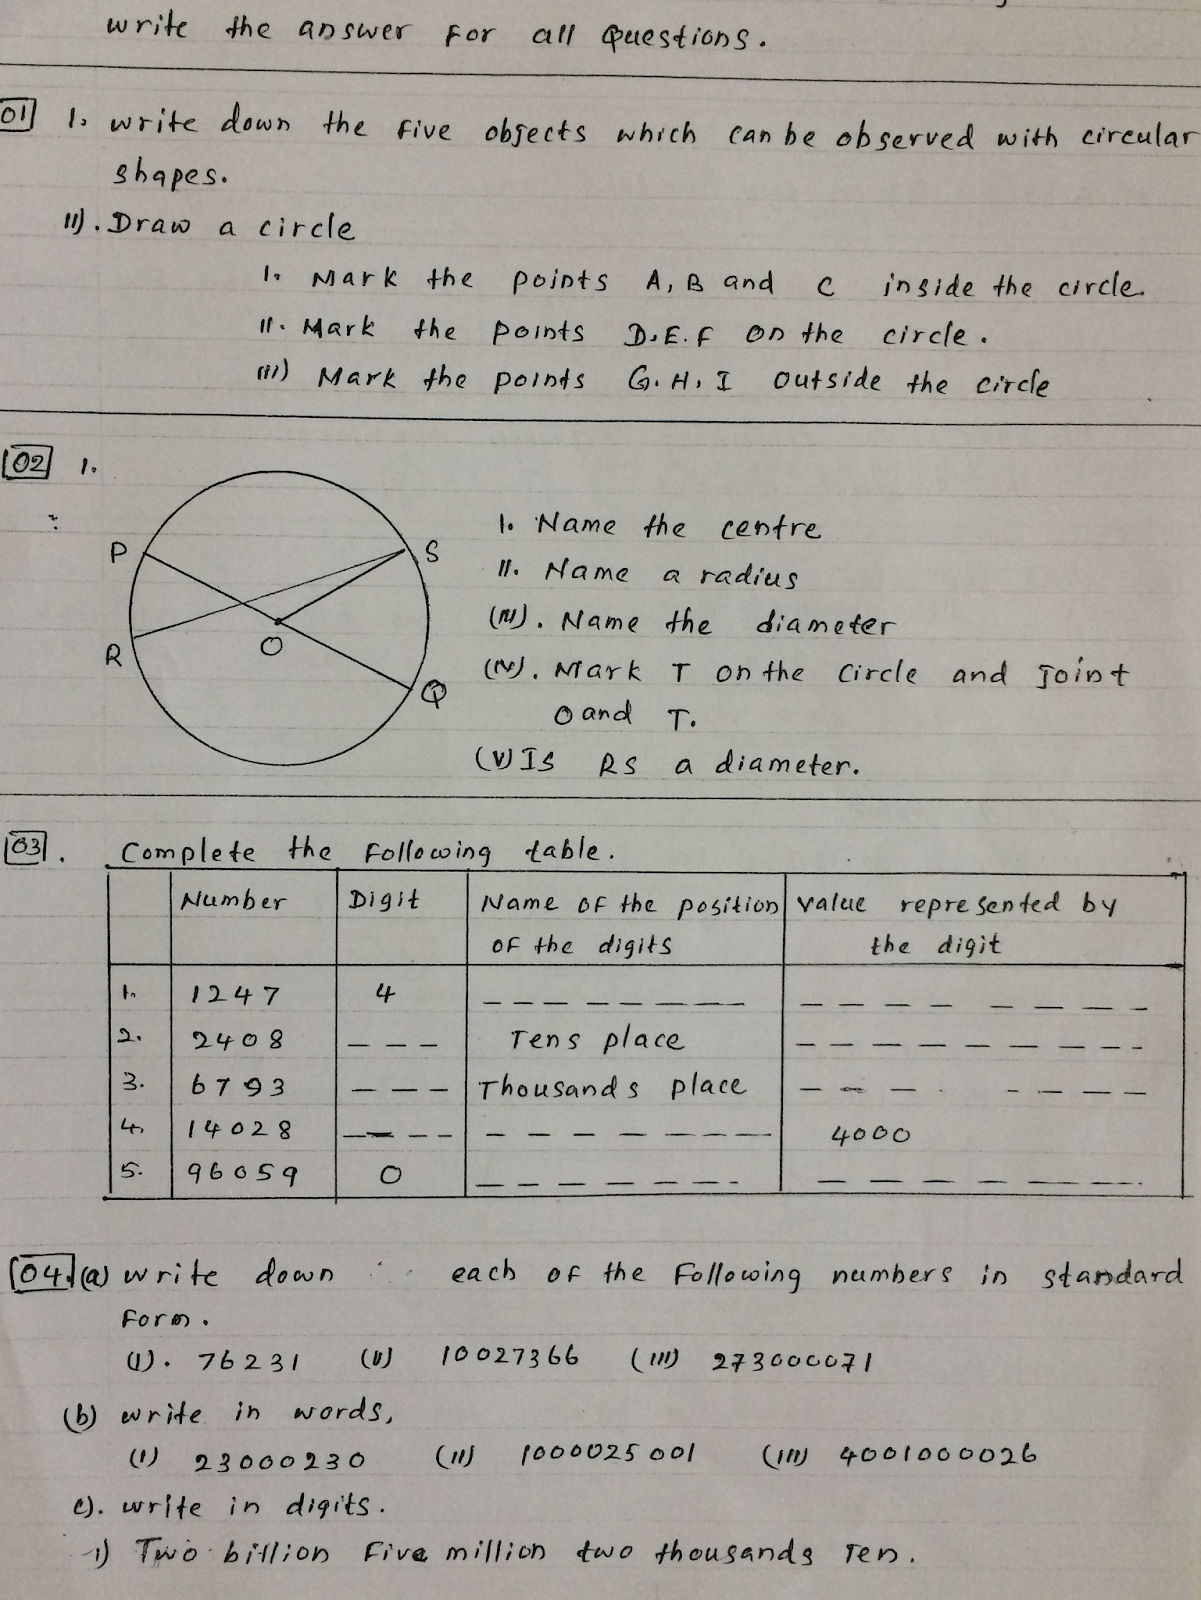 write the answer for all questions.
01 I. write down the five objects which can be observed with circular
shapes.
II). Draw a circle
I. Mark the points A, B and C inside the circle.
II. Mark the points D.E.F on the circle.
III) Mark the points G.H, I outside the circle
02 1.
P
S
R
O
Q
I. Name the centre
II. Name a radius
(III). Name the diameter
(IV). Mark T on the circle and joint
O and T.
(V) Is RS a diameter.
03. Complete the following table.
Number Digit Name of the position value represented by
of the digits the digit
1. 1247 4 _ _ _ _ _ _ _ _ _ _ _ _ _ _
2. 2408 _ _ _ Tens place _ _ _ _ _ _ _
3. 6793 _ _ _ Thousands place _ _ _ _ _ _ _
4. 14028 _ _ _ _ _ _ _ _ _ _ 4000
5. 96059 0 _ _ _ _ _ _ _ _ _ _ _ _ _
04. (a) write down each of the following numbers in standard
form.
(I). 76231 (II) 10027366 (III) 273000071
(b) write in words,
(I) 23000230 (II) 1000025001 (III) 4001000026
c). write in digits.
i) Two billion Five million two thousands Ten.